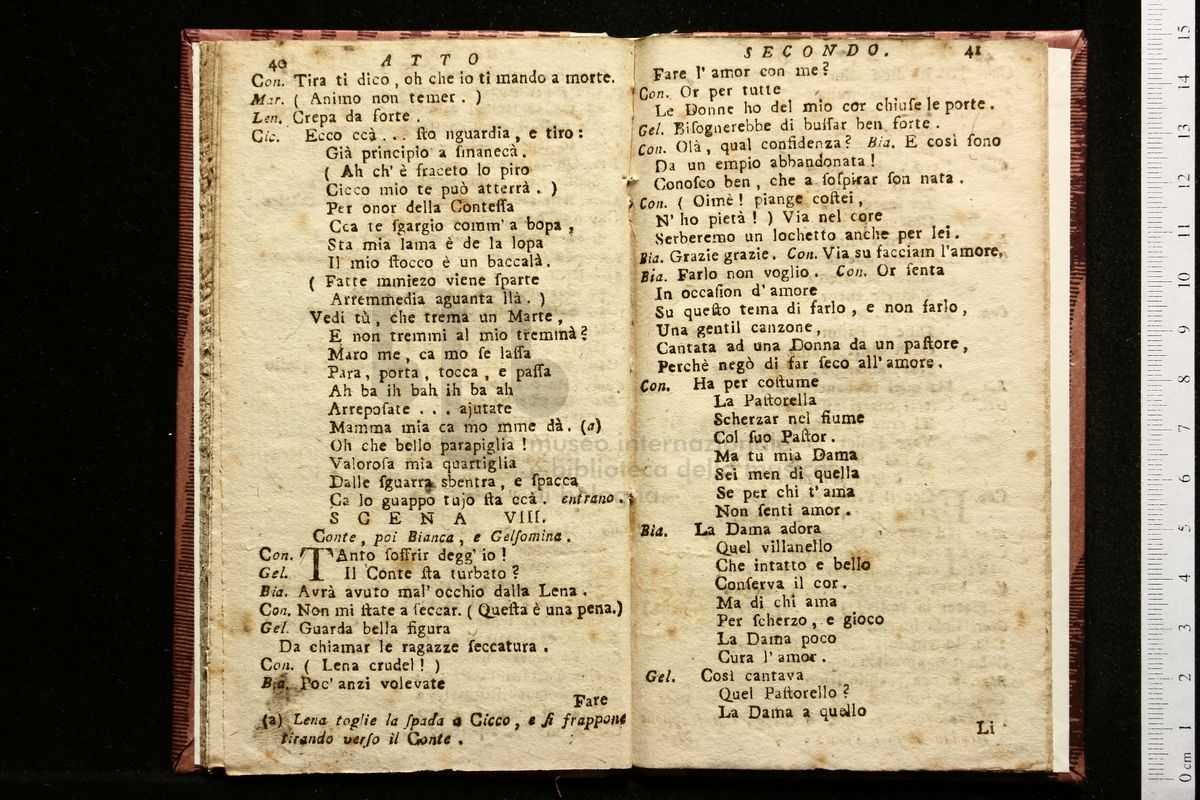 40 ATTO
Con. Tira ti dico, oh che io ti mando a morte.
Mar. ( Animo non temer. )
Len. Crepa da ſorte.
Cic. Ecco ccà... ſto nguardia, e tiro:
Già principio a ſmanecà.
( Ah ch' è fraceto lo piro
Cicco mio te può atterrà. )
Per onor della Conteſſa
Cca te ſgargio comm' a bopa,
Sta mia lama è de la lopa
Il mio ſtocco è un baccalà.
( Fatte mmiezo viene ſparte
Arremmedia aguanta llà. )
Vedi tù, che trema un Marte,
E non tremmi al mio tremmà?
Maro me, ca mo ſe laſſa
Para, porta, tocca, e paſſa
Ah ba ih bah ih ba ah
Arrepoſate... ajutate
Mamma mia ca mo mme dà. (a)
Oh che bello parapiglia!
Valoroſa mia quartiglia
Dalle ſguarra sbentra, e ſpacca
Ca lo guappo tujo ſta ccà. entrano.
SCENA VIII.
Conte, poi Bianca, e Gelſomina.
Con. TAnto ſoffrir degg' io!
Gel. Il Conte ſta turbato?
Bia. Avrà avuto mal' occhio dalla Lena.
Con. Non mi ſtate a ſeccar. ( Queſta è una pena.)
Gel. Guarda bella figura
Da chiamar le ragazze ſeccatura.
Con. ( Lena crudel! )
Bia. Poc' anzi volevate
Fare
(a) Lena toglie la ſpada a Cicco, e ſi frappone
tirando verſo il Conte.
SECONDO. 41
Fare l' amor con me?
Con. Or per tutte
Le Donne ho del mio cor chiuſe le porte.
Gel. Biſognerebbe di buſſar ben forte.
Con. Olà, qual confidenza? Bia. E così ſono
Da un empio abbandonata!
Conoſco ben, che a ſoſpirar ſon nata.
Con. ( Oimè! piange coſtei,
N' ho pietà! ) Via nel core
Serberemo un lochetto anche per lei.
Bia. Grazie grazie. Con. Via su facciam l'amore,
Bia. Farlo non voglio. Con. Or ſenta
In occaſion d' amore
Su queſto tema di farlo, e non farlo,
Una gentil canzone,
Cantata ad una Donna da un paſtore,
Perchè negò di far ſeco all' amore.
Con. Ha per coſtume
La Paſtorella
Scherzar nel fiume
Col ſuo Paſtor.
Ma tu mia Dama
Sei men di quella
Se per chi t' ama
Non ſenti amor.
Bia. La Dama adora
Quel villanello
Che intatto e bello
Conſerva il cor.
Ma di chi ama
Per ſcherzo, e gioco
La Dama poco
Cura l' amor.
Gel. Così cantava
Quel Paſtorello?
La Dama a quello
Li
museo internazionale
e biblioteca della musica
di bologna
0 cm 1 2 3 4 5 6 7 8 9 10 11 12 13 14 15